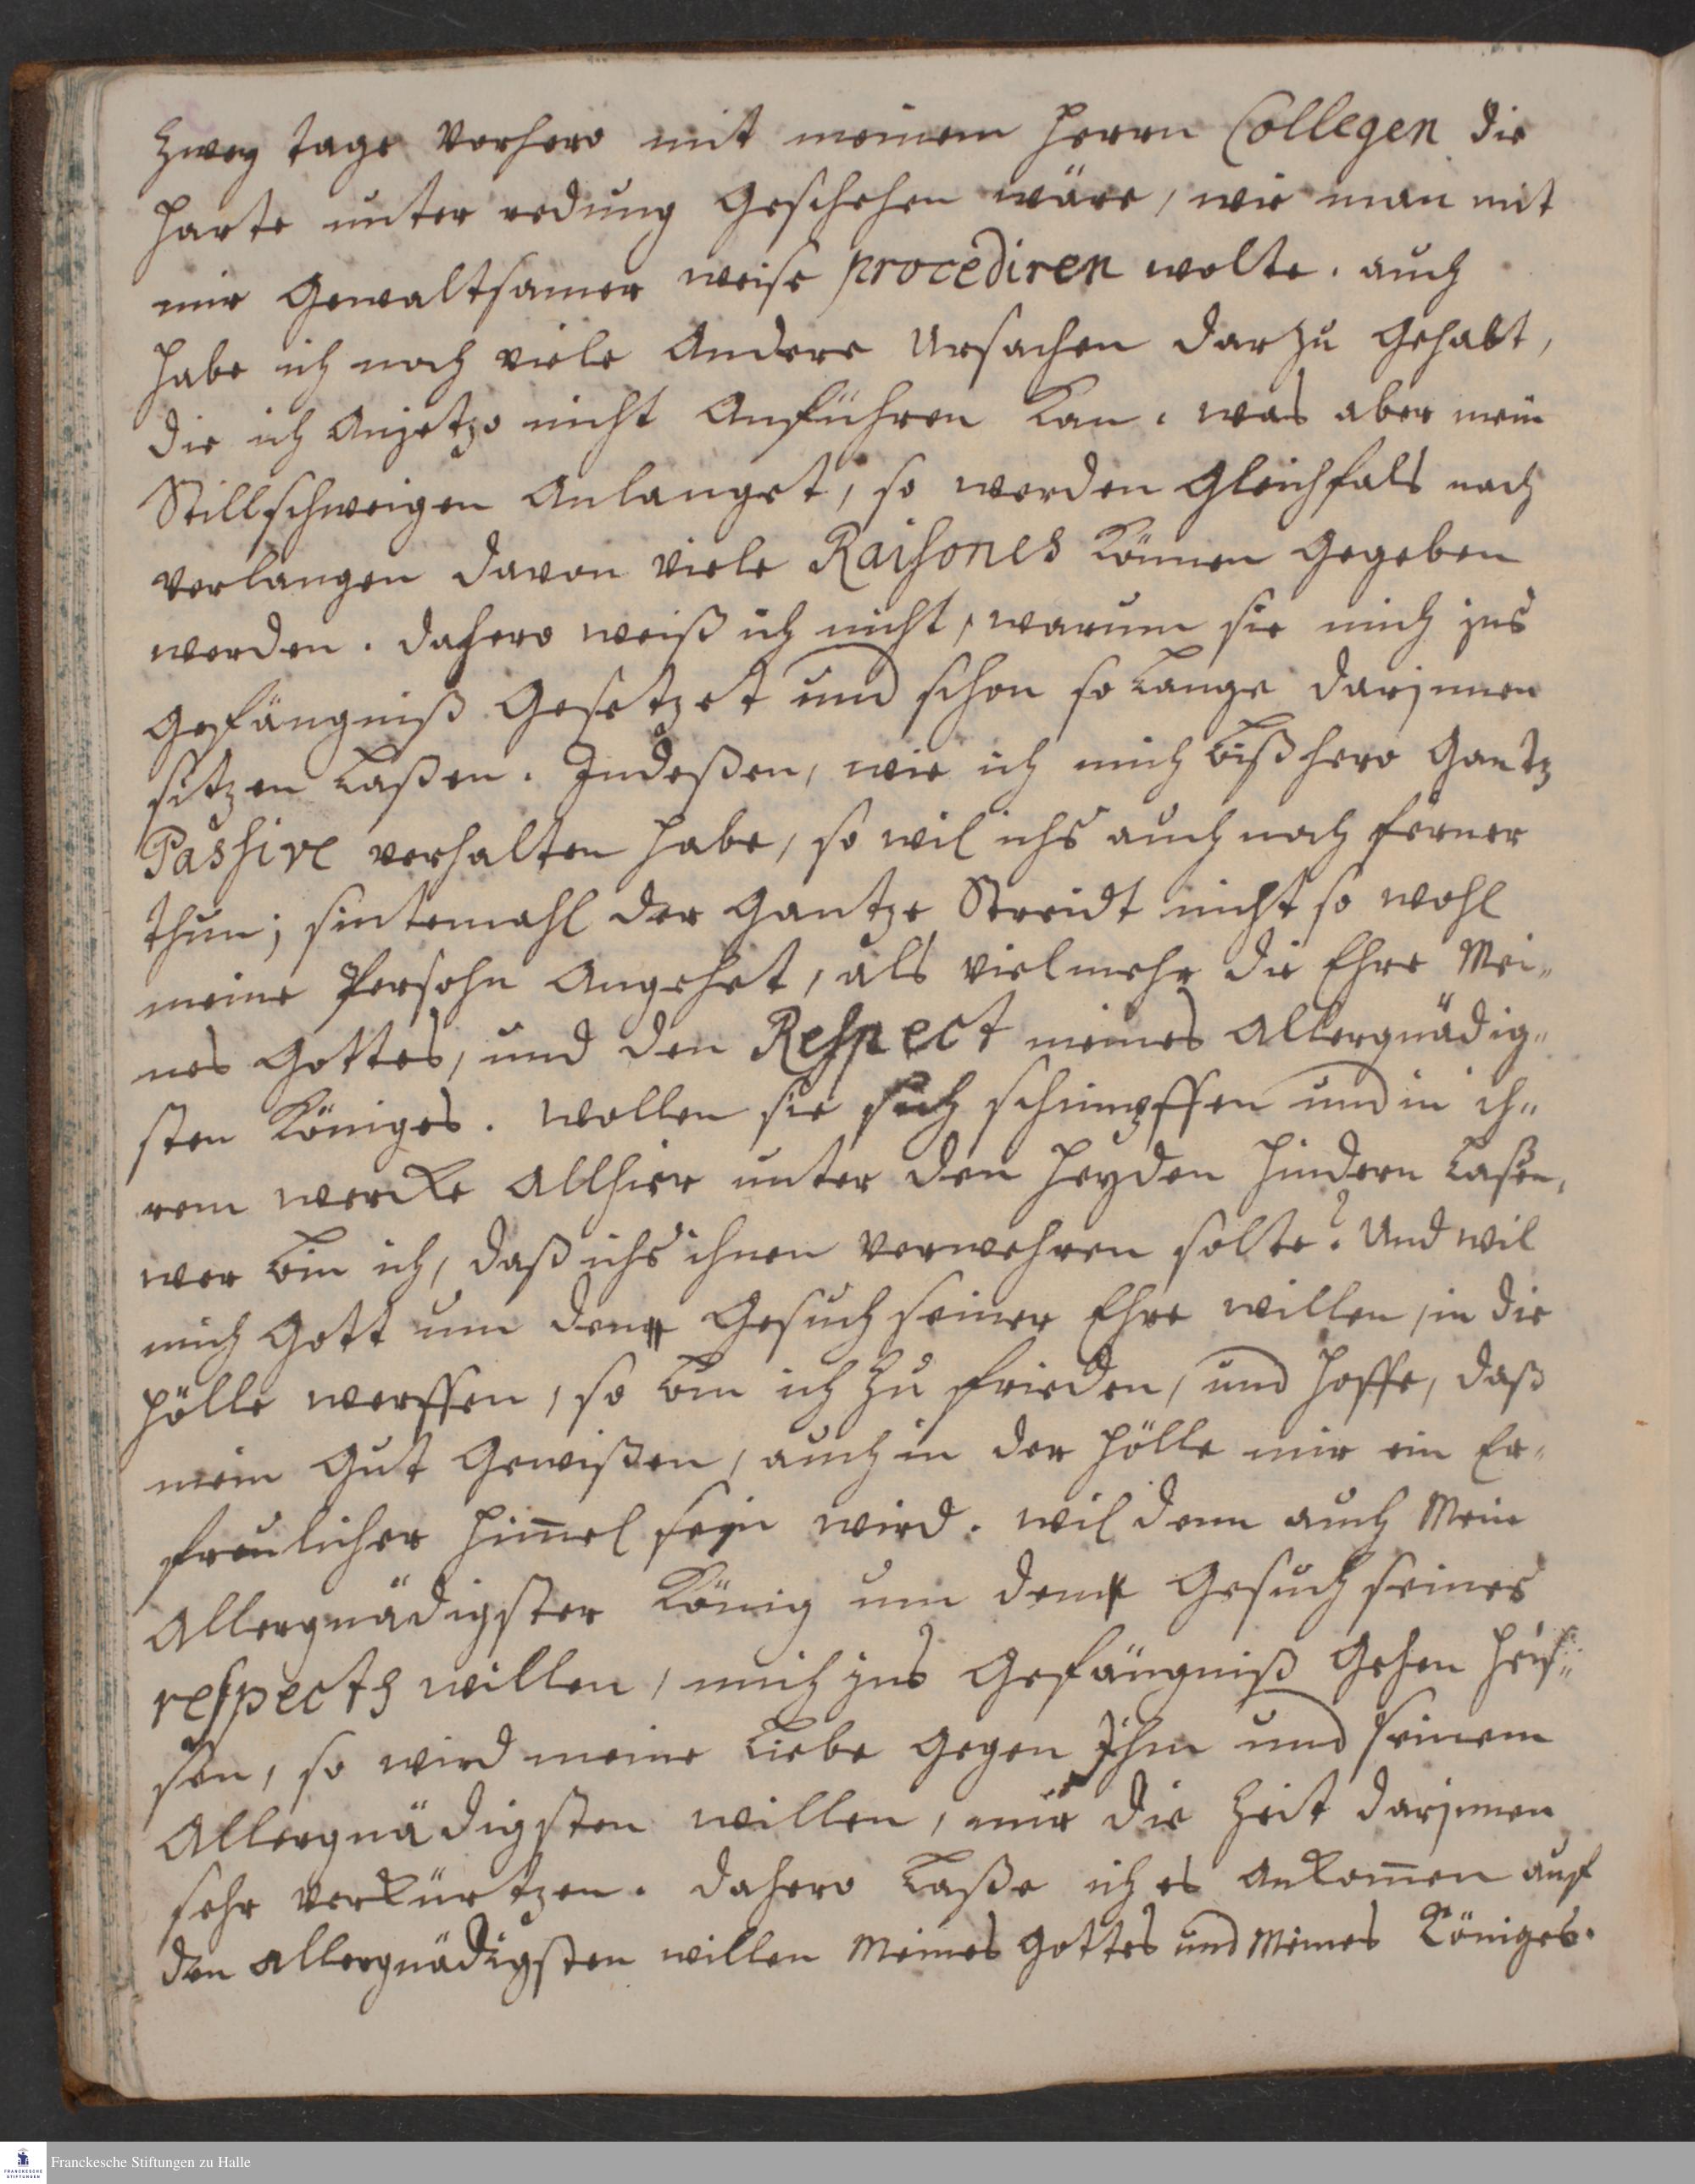 Zwey tage vorhero mit meinem Herrn Collegen die
harte unter redung geschehen wäre, wie man mit
mir gewaltsamer weise procediren wolte. auch
habe ich noch viele andere Ursachen darzu gehabt,
die ich anjetzo nicht anführen kan. was aber mein
Stillschweigen anlanget, so werden gleichfals nach
verlangen davon viele Raisones können gegeben
werden. dahero weiß ich nicht, warum sie mich ins
gefängniß gesetzet und schon so lange darjnnen
sitzen laßen. Indeßen, wie ich mich bißhero gantz
Passive verhalten habe, so wil ichs auch noch ferner
thun; sintemahl der gantze Streidt nicht so wohl
meine Persohn angehet, als vielmehr die Ehre Mei„
nes Gottes, und den Respect meines allergnädig„
sten Königes. wollen sie sich schimpffen und in ih„
rem wercke allhier unter den Heyden hindern laßen,
wer bin ich, daß ichs ihnen verwehren solte? Und wil
mich Gott um den Gesuch seiner Ehre willen, in die
Hölle werffen, so bin ich zu frieden, und hoffe, daß
mein gut gewißen, auch in der Hölle mir ein Er„
freulicher Him̄el sein wird. wil denn auch Mein
allergnädigster König um den Gesuch seines
respects willen, mich ins Gefängniß gehen heis„
sen, so wird meine Liebe gegen Jhm und seinem
allergnädigsten willen, mir die Zeit darjnnen
sehr verkürtzen. dahero laße ich es ankom̄en auf
den allergnädigsten willen Meines Gottes und Meines Königes.
Franckesche Stiftungen zu Halle
FRANCKESCHE
STIFTUNGEN